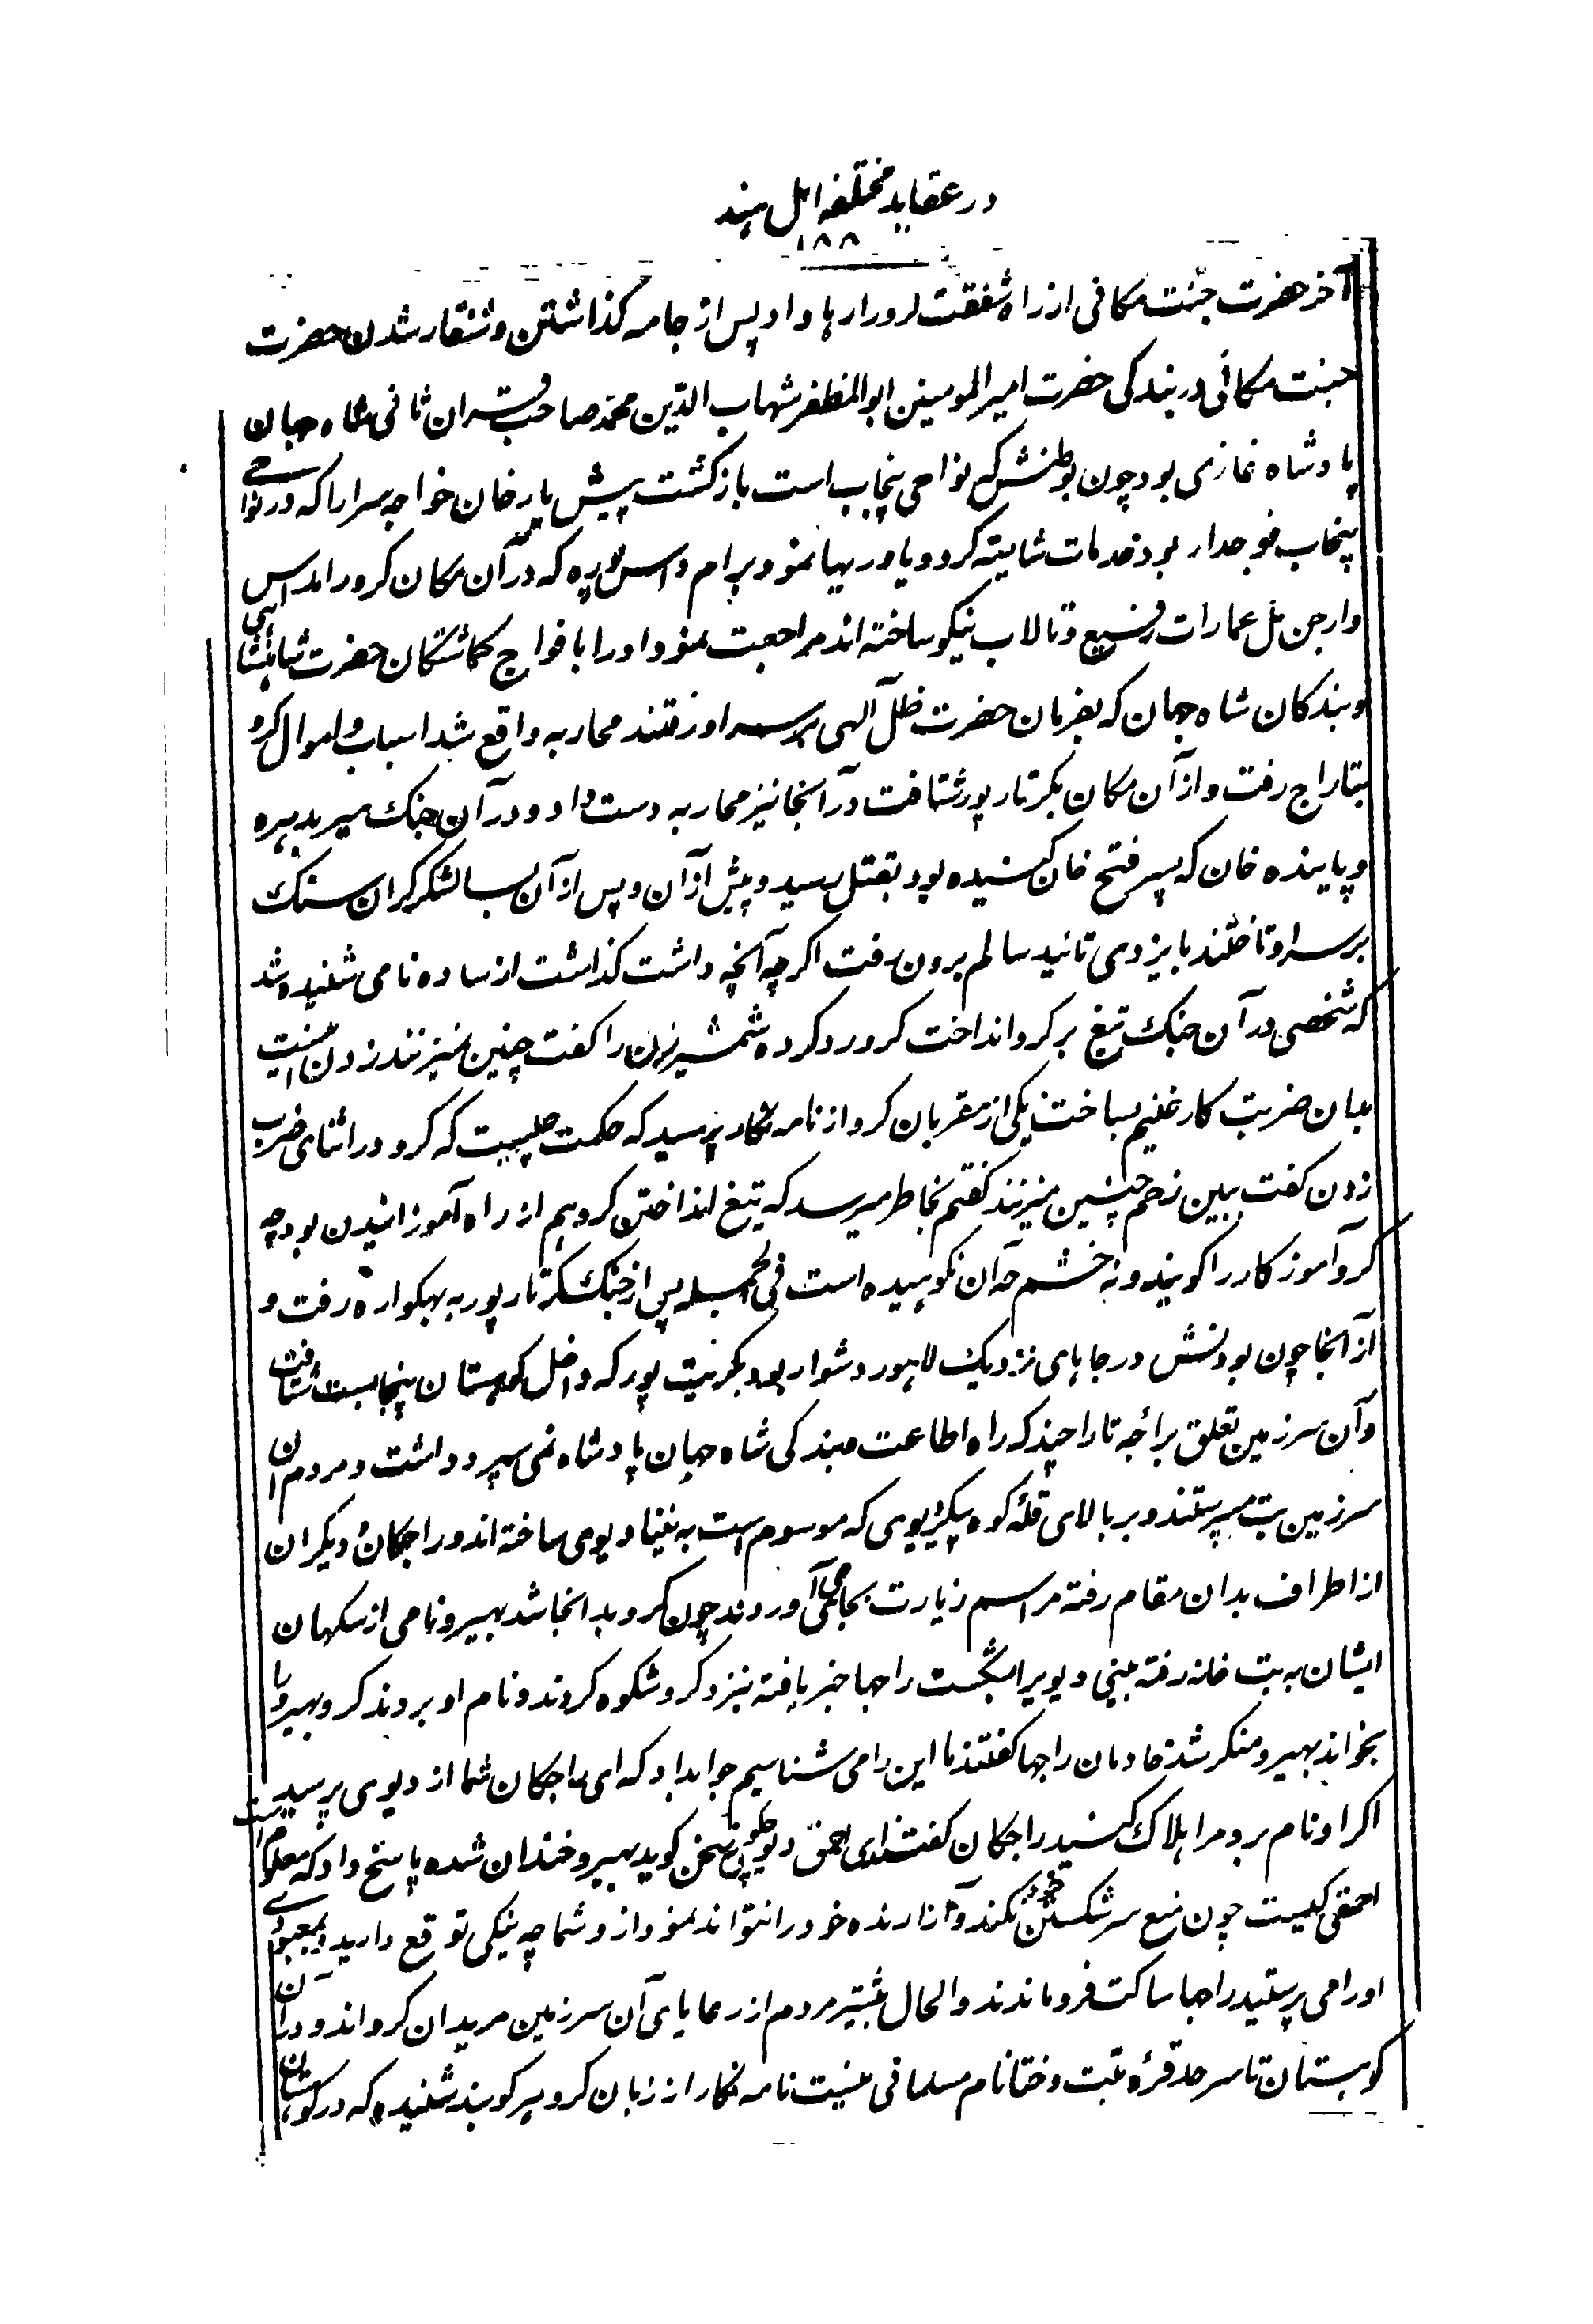 در عقاید مختلفه اهل هند
۱۸۸
آخر حضرت جنت مکانی از راه شفقت کرو را رها داد پس از جامه گذاشتن و شنقار شدن حضرت
جنت مکانی در بندگی حضرت امیر المومنین ابو المظفر شهاب الدین محمد صاحبقران ثانی شاه جهان
پادشاه غازی بود چون بوطنش که نواحی پنجاب است بازگشت پیش یار خان خواجه سرا را که در نواحی
پنجاب فوجدار بود خدمات شایسته کرد و یاوریها نمود برام داس پوره که در آن مکان کرو رامداس
و ارجن مل عمارات رفیع و تالاب نیکو ساخته اند مراجعت نمود او را با فواج گماشتگان حضرت شاهنشاهی
و بندگان شاه جهان که بفرمان حضرت ظل آلهی بر سر او رفتند محاربه واقع شد اسباب و اموال کرو
بتاراج رفت و از آن مکان بکرتارپور شتافت در آنجا نیز محاربه دست داد و در آن جنگ میر بدهره
و پاینده خان که پسر فتح خان کنیده بود بقتل رسید و پیش از آن و پس از آن بسا لشکر گران سنگ
بر سر او تاختند با یزدی تائید سالم برون رفت اگرچه آنچه داشت گذاشت از ساده نامی شنیده شد
که شخصی در آن جنگ تیغ بر کرو انداخت کرو رد کرده شمشیر زن را گفت چنین نمیزنند زدن اینست
بدان ضربت کار غنیم بساخت یکی از مقربان کرو از نامه نگار پرسید که حکمت چیست که کرو در اثنای ضرب
زدن گفت ببین زخم چنین میزنند گفتم بخاطر میرسد که تیغ انداختن کرو هم از راه آموزانیدن بود چه
کرو آموزکار را گویند و نه خشم چه آن نکوهیده است فی الجمله پس از جنگ کرتارپور به بهکواره رفت و
از آنجا چون بودنش در جاهای نزدیک لاهور دشوار بود بکرنیت پور که داخل کوهستان پنجابست شتافت
و آن سرزمین تعلق براجه تاراچند که راه اطاعت و بندگی شاه جهان پادشاه نمی سپرد داشت و مردم آن
سرزمین بت میپرستند و بر بالای قله کوه پیکر دیوی که موسوم است به نینا دیوی ساخته اند و راجگان و دیگران
از اطراف بدان مقام رفته مراسم زیارت بجا می آوردند چون کرو بدانجا شد بهیرو نامی از سکهان
ایشان به بت خانه رفته بینی دیوی را بشکست راجها خبر یافته بنزد کرو شکوه کردند و نام او بردند کرو بهیرو را
بخواند بهیرو منکر شد خادمان راجها گفتند ما این را می شناسیم جوابداد که ای راجگان شما از دیوی پرسید
اگر او نام برد مرا هلاک کنید راجگان گفتند ای احمق دیوی چطور سخن گوید بهیرو خندان شده پاسخ داد که معلوم است
احمق کیست چون منع سر شکستن خود نکند و آزارنده خود را نتواند نمود از و شما چه نیکی توقع دارید و بمعبودی
او را می پرستید راجها ساکت فرو ماندند و الحال بیشتر مردم از رعایای آن سرزمین مریدان کرو اند و در آن
کوهستان تا سرحد قره تبت و ختا نام مسلمانی نیست نامه نگار از زبان کرو هر گوبند شنیده که در کوهستان